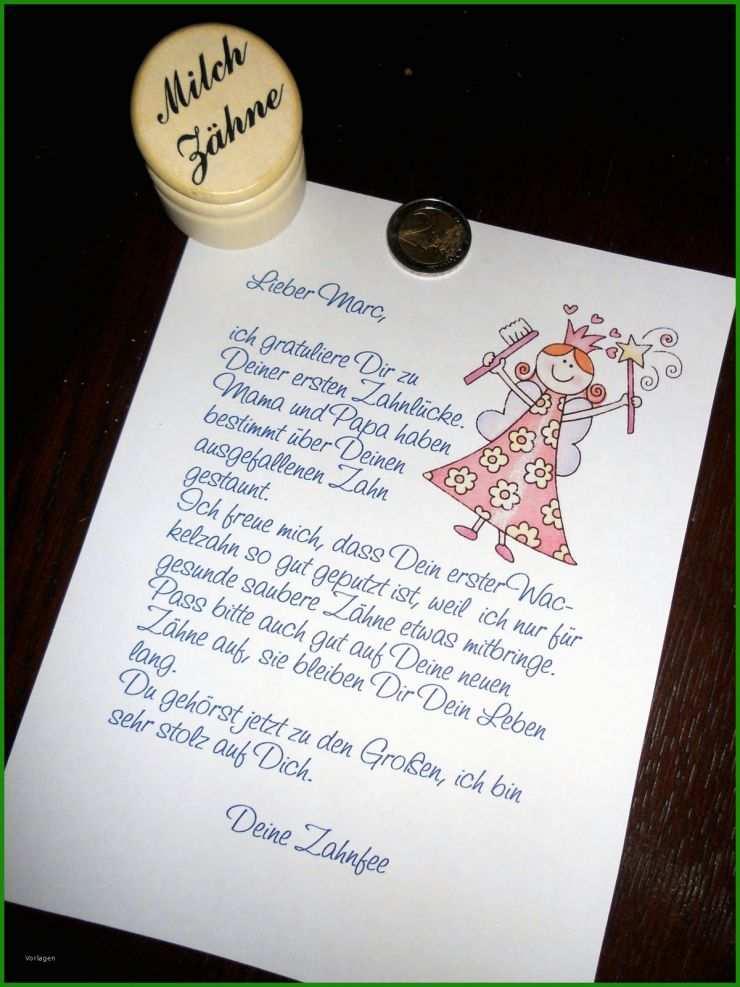 Milch
Zähne
2
Lieber Marc,
ich gratuliere Dir zu
Deiner ersten Zahnlücke.
Mama und Papa haben
bestimmt über Deinen
ausgefallenen Zahn
gestaunt.
Ich freue mich, dass Dein erster Wac-
kelzahn so gut geputzt ist, weil ich nur für
gesunde saubere Zähne etwas mitbringe.
Pass bitte auch gut auf Deine neuen
Zähne auf, sie bleiben Dir Dein Leben
lang.
Du gehörst jetzt zu den Großen, ich bin
sehr stolz auf Dich.
Deine Zahnfee
Vorlagen